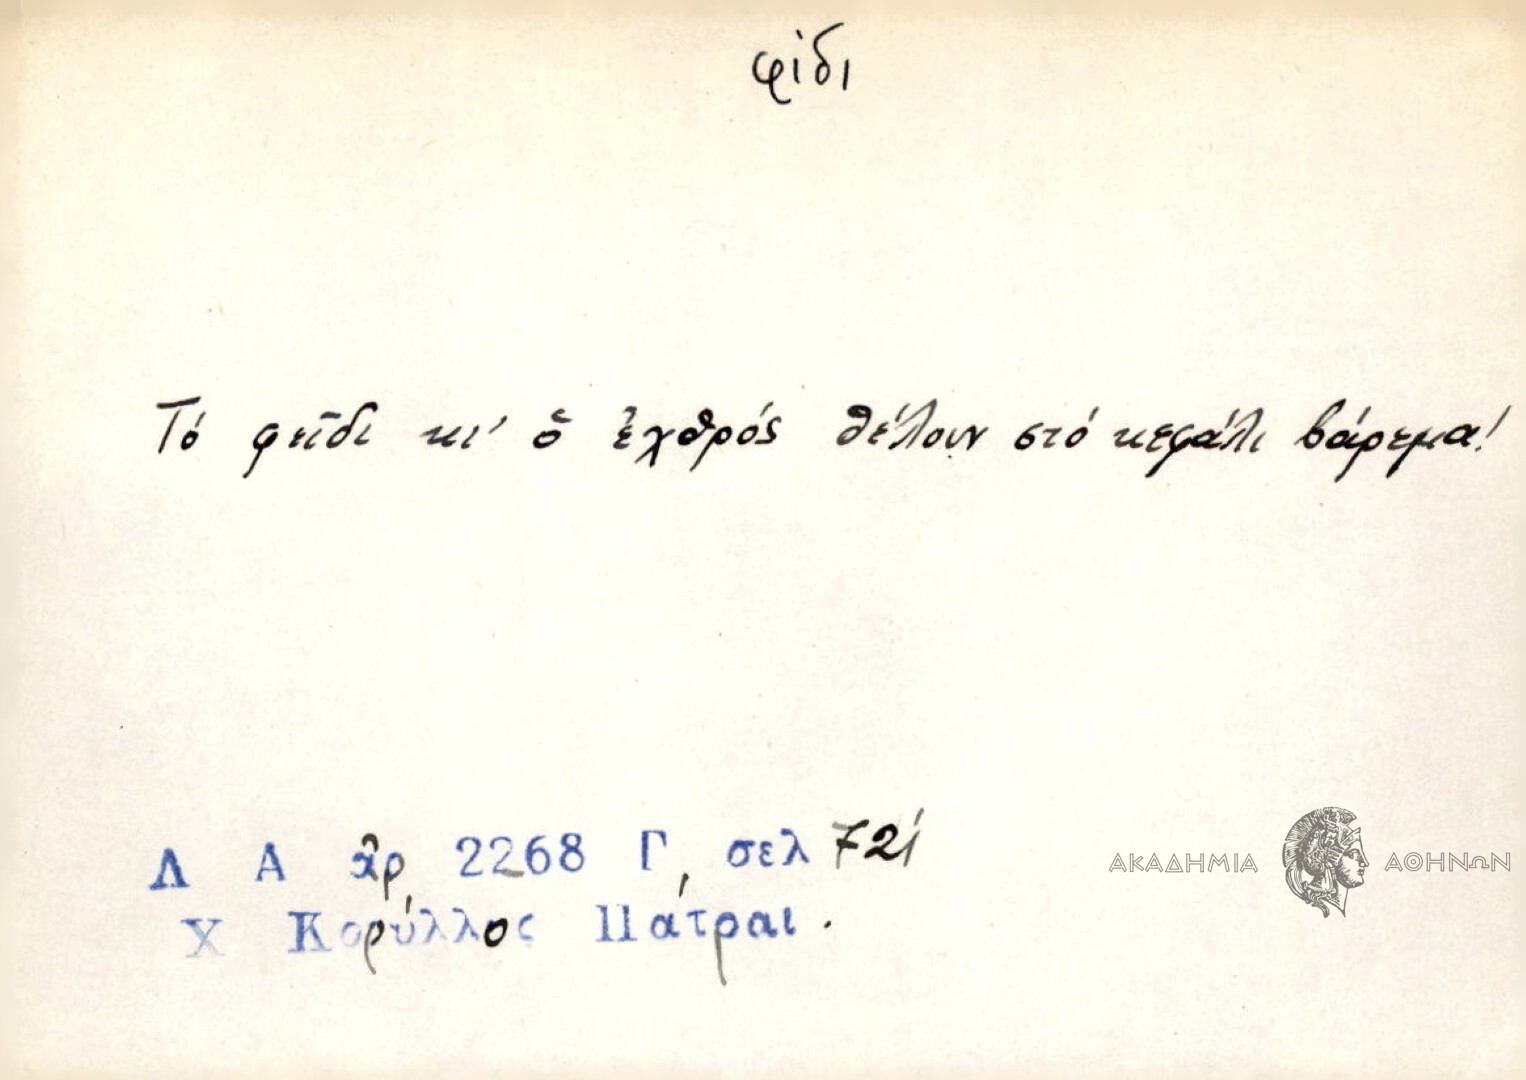 φίδι
Τό φεῖδι κι' ὁ ἐχθρός θέλουν στό κεφάλι βάρεμα!
Λ Α ἀρ 2268 Γ, σελ 721
Χ Κορύλλος Πάτραι.
ΑΚΑΔΗΜΙΑ ΑΘΗΝΩΝ